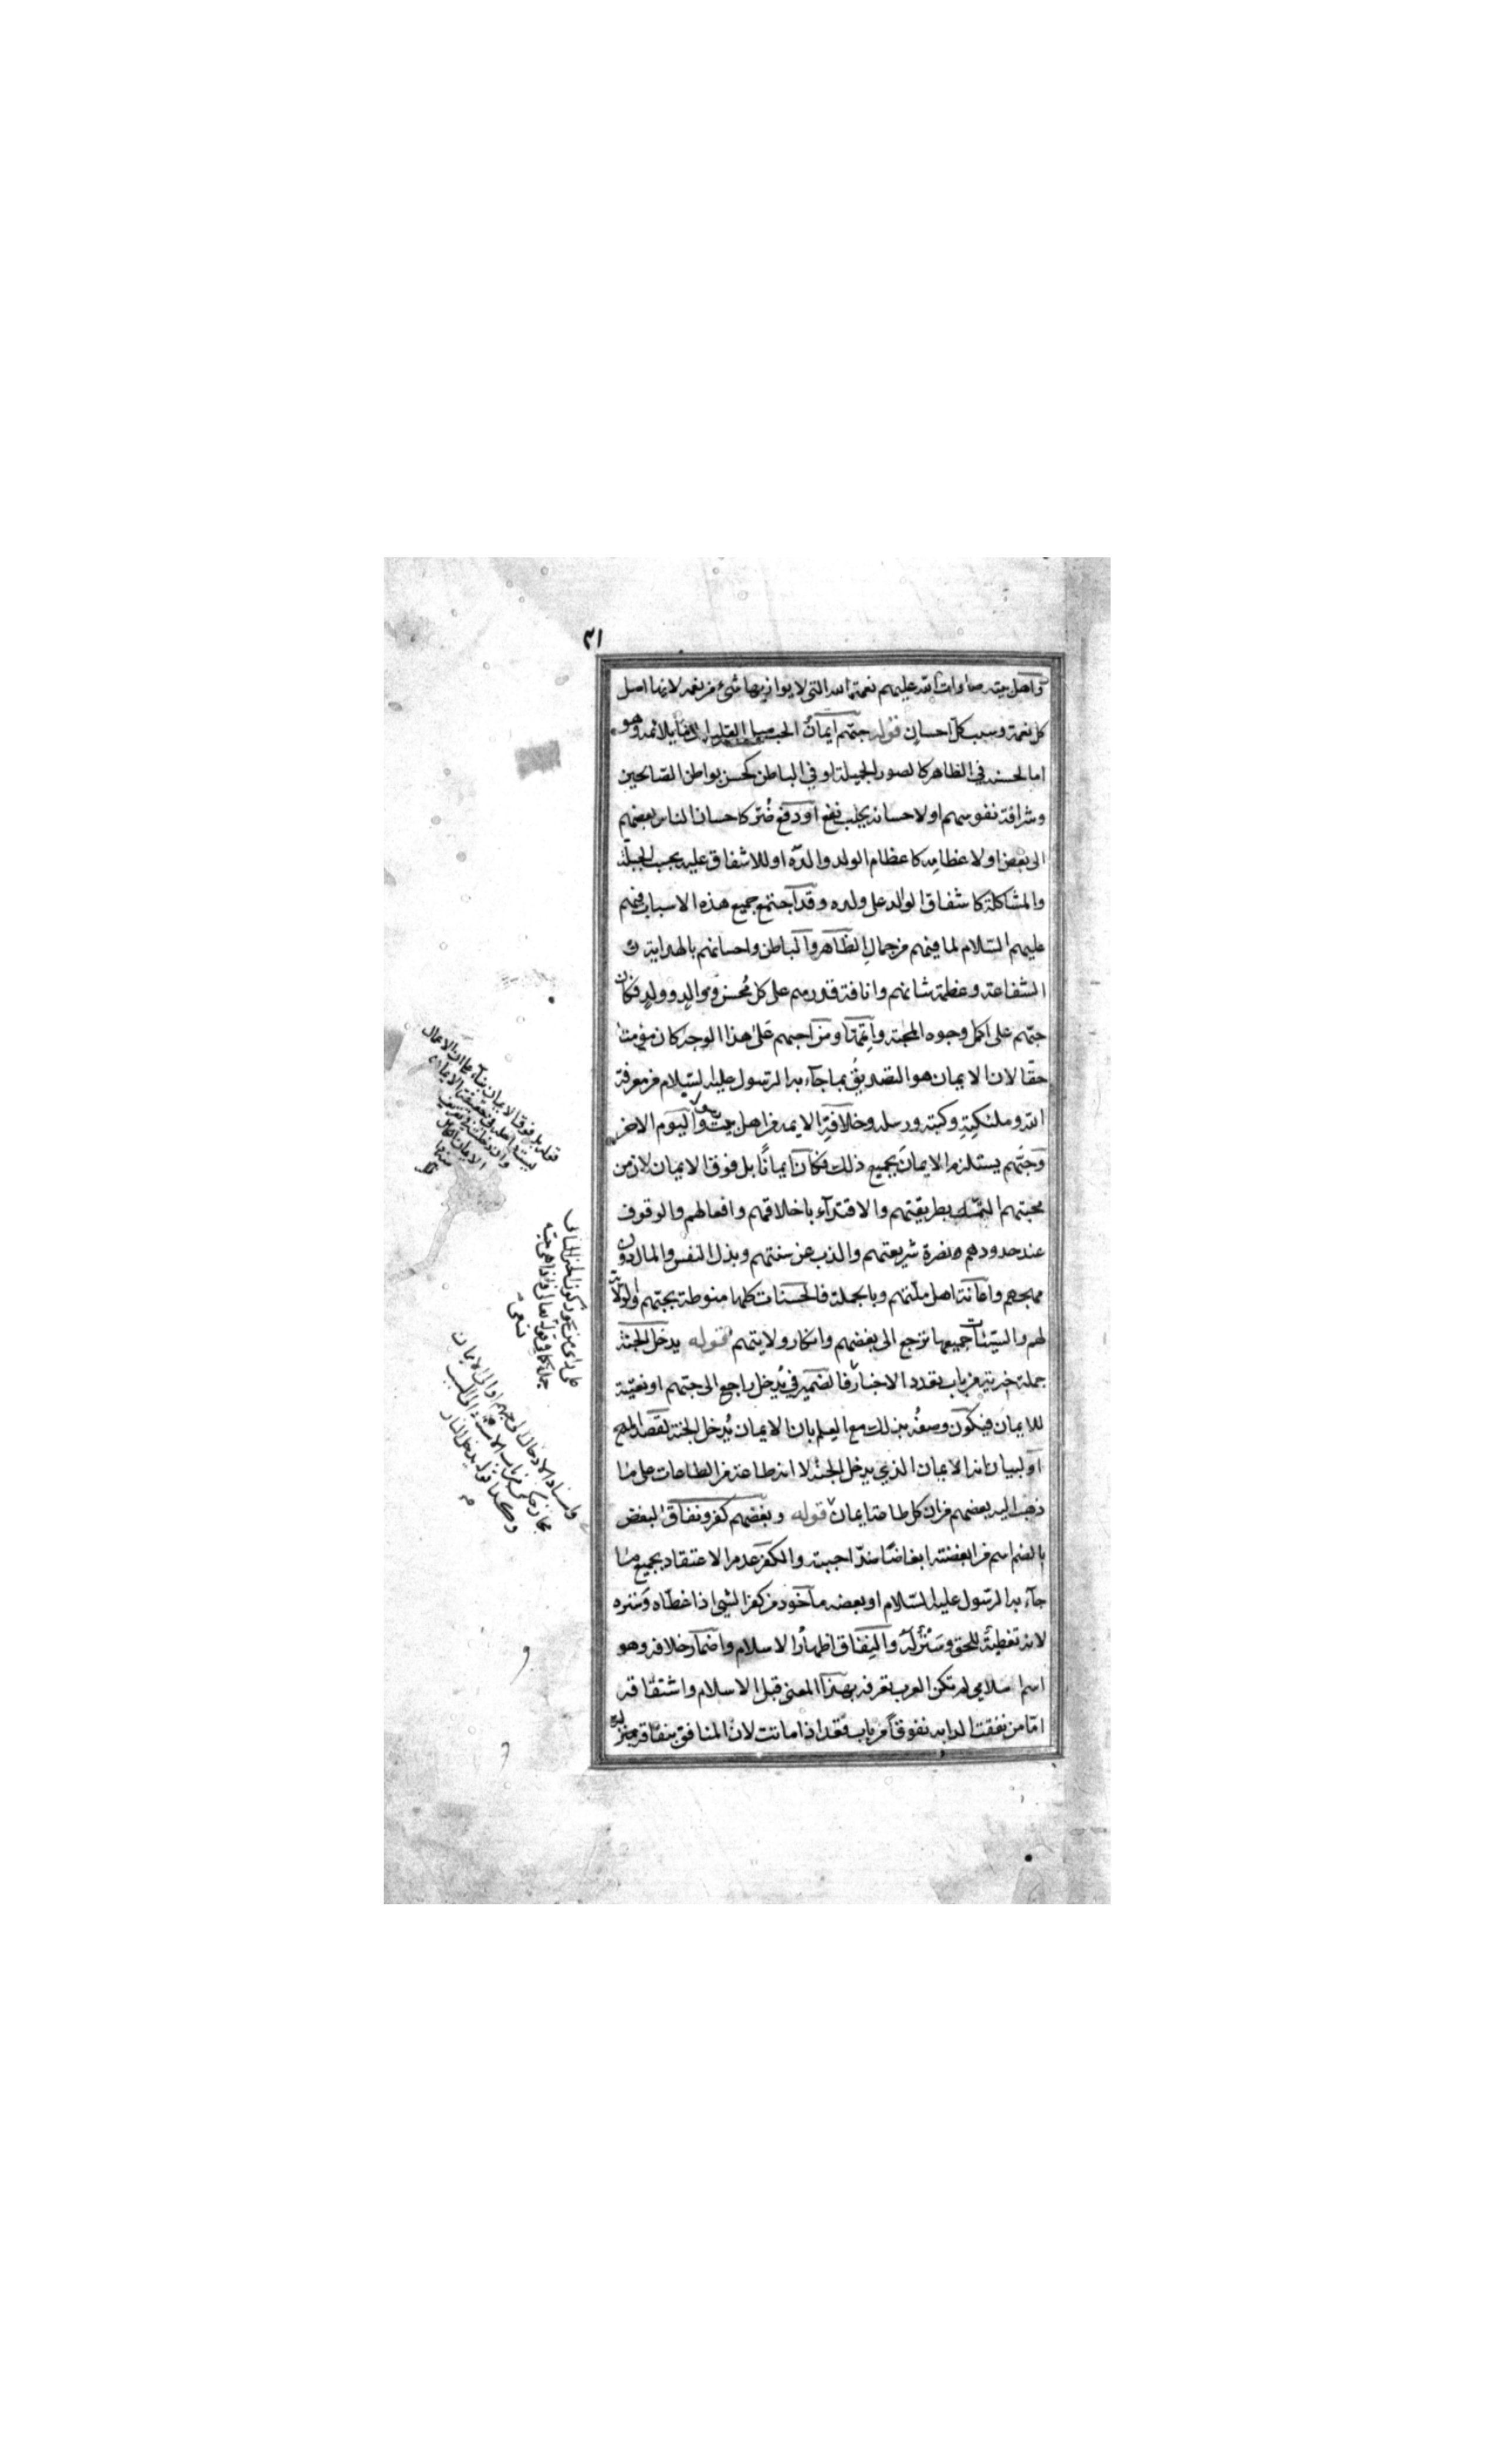 ٢١
واهل بيته صلوات الله عليهم نعمة الله التي لا يوازيها شيء من نعمه لانها اصل
كل نعمة وسبب كل احسان قوله حبهم ايمان الحب ميل القلب الى ما يلائمه وهو
اما لحسنه في الظاهر كالصور الجميلة او في الباطن كحسن بواطن الصالحين
وشرافة نفوسهم او لاحسانه بجلب نفع او دفع ضر كاحسان الناس بعضهم
الى بعض او لاعظامه كاعظام الولد والده او للاشفاق عليه بحسب الجبلة
والمشاكلة كاشفاق الوالد على ولده وقد اجتمع جميع هذه الاسباب فيهم
عليهم السلام لما فيهم من جمال الظاهر والباطن واحسانهم بالهداية و
الشفاعة وعظمة شانهم وانافة قدرهم على كل محسن ووالد وولد فكان
حبهم على اكمل وجوه المحبة واتمها ومن احبهم على هذا الوجه كان مؤمنا
حقا لان الايمان هو التصديق بما جاء به الرسول عليه السلام من معرفة
الله وملئكته وكتبه ورسله وخلافة الايمة من اهل بيت رسوله واليوم الاخر
وحبهم يستلزم الايمان بجميع ذلك فكان ايمانا بل فوق الايمان لان من
محبتهم التمسك بطريقتهم والاقتداء باخلاقهم وافعالهم والوقوف
عند حدودهم ونصرة شريعتهم والذب عن سنتهم وبذل النفس والمال دون
مهجهم واعانة اهل ملتهم وبالجملة فالحسنات كلها منوطة بحبهم والولاية
لهم والسيئات جميعها ترجع الى بغضهم وانكار ولايتهم قوله يدخل الجنة
جملة خبرية من باب تعدد الاخبار فالضمير في يدخل راجع الى حبهم او نعتية
للايمان فيكون وصفه بذلك مع العلم بان الايمان يدخل الجنة لقصد المدح
او لبيان انه الايمان الذي يدخل الجنة لا انه طاعة من الطاعات على ما
ذهب اليه بعضهم من ان كل طاعة ايمان قوله وبغضهم كفر ونفاق البغض
بالضم اسم من ابغضته ابغاضا ضد احببته والكفر عدم الاعتقاد بجميع ما
جاء به الرسول عليه السلام او بعضه ماخوذ من كفر الشي اذا غطاه وستره
لانه تغطية للحق وستر له والنفاق اظهار الاسلام واضمار خلافه وهو
اسم اسلامي لم تكن العرب تعرفه بهذا المعنى قبل الاسلام واشتقاقه
اما من نفقت الدابة نفوقا من باب قعد اذا ماتت لان المنافق بنفاقه بمنزلة
قوله بل فوق الايمان بناء على ان الاعمال
ليست داخلة في حقيقة الايمان
على راي من يجوز كون الخبر الثاني
جملة كما في قوله تعالى فاذا هي حية
تسعى
واسناد الادخال الى حبهم او الى الايمان
مجاز عقلي من باب الاسناد الى السبب
وكذا قوله يدخل النار